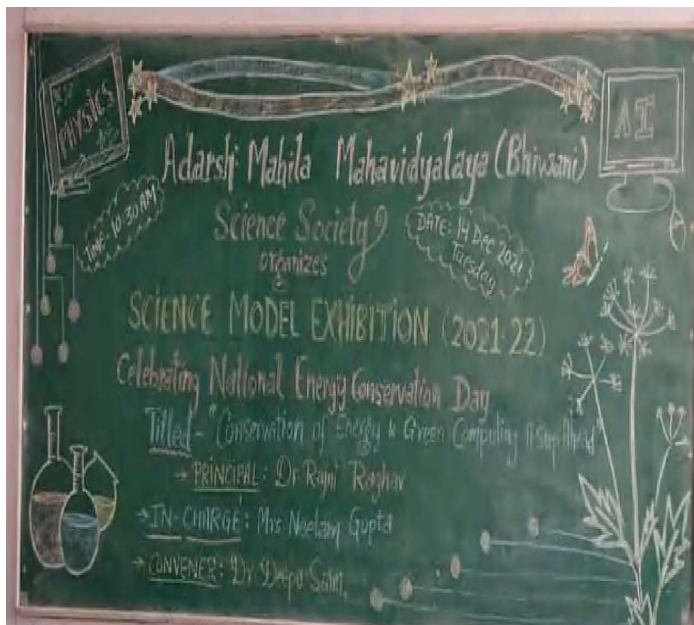 PHYSICS
AI
Adarsh Mahila Mahavidyalaya (Bhiwani)
TIME: 10:30 AM
Science Society
DATE: 14 Dec 2021
Tuesday
organizes
SCIENCE MODEL EXHIBITION (2021-22)
Celebrating National Energy Conservation Day
Titled - "Conservation of Energy & Green Computing A step Ahead"
→ PRINCIPAL: Dr Rajni Raghav
→ IN-CHARGE: Mrs Neelam Gupta
→ CONVENER: Dr Deepu